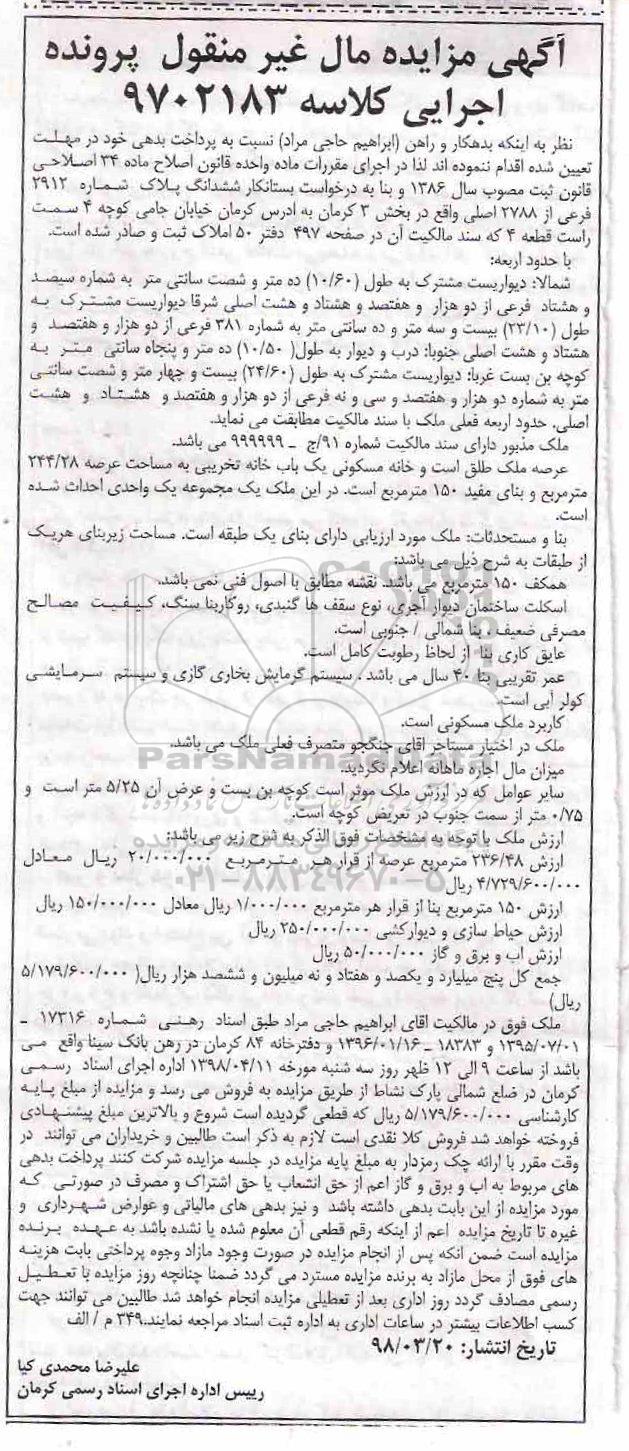 آگهی مزایده مال غیر منقول پرونده
اجرایی کلاسه ۹۷۰۲۱۸۳
نظر به اینکه بدهکار و راهن (ابراهیم حاجی مراد) نسبت به پرداخت بدهی خود در مهلت
تعیین شده اقدام ننموده اند لذا در اجرای مقررات ماده واحده قانون اصلاح ماده ۳۴ اصلاحی
قانون ثبت مصوب سال ۱۳۸۶ و بنا به درخواست بستانکار ششدانگ پلاک شماره ۲۹۱۲
فرعی از ۲۷۸۸ اصلی واقع در بخش ۳ کرمان به ادرس کرمان خیابان جامی کوچه ۴ سمت
راست قطعه ۴ که سند مالکیت آن در صفحه ۴۹۷ دفتر ۵۰ املاک ثبت و صادر شده است.
با حدود اربعه:
شمالا: دیواریست مشترک به طول (۱۰/۶۰) ده متر و شصت سانتی متر به شماره سیصد
و هشتاد فرعی از دو هزار و هفتصد و هشتاد و هشت اصلی شرقا دیواریست مشترک به
طول (۲۳/۱۰) بیست و سه متر و ده سانتی متر به شماره ۳۸۱ فرعی از دو هزار و هفتصد و
هشتاد و هشت اصلی جنوبا: درب و دیوار به طول( ۱۰/۵۰) ده متر و پنجاه سانتی متر به
کوچه بن بست غربا: دیواریست مشترک به طول (۲۴/۶۰) بیست و چهار متر و شصت سانتی
متر به شماره دو هزار و هفتصد و سی و نه فرعی از دو هزار و هفتصد و هشتاد و هشت
اصلی. حدود اربعه فعلی ملک با سند مالکیت مطابقت می نماید.
ملک مذبور دارای سند مالکیت شماره ۹۱/ج _ ۹۹۹۹۹۹ می باشد.
عرصه ملک طلق است و خانه مسکونی یک باب خانه تخریبی به مساحت عرصه ۲۴۴/۲۸
مترمربع و بنای مفید ۱۵۰ مترمربع است. در این ملک یک مجموعه یک واحدی احداث شده
است.
بنا و مستحدثات: ملک مورد ارزیابی دارای بنای یک طبقه است. مساحت زیربنای هریک
از طبقات به شرح ذیل می باشد:
همکف ۱۵۰ مترمربع می باشد. نقشه مطابق با اصول فنی نمی باشد.
اسکلت ساختمان دیوار آجری، نوع سقف ها گنبدی، روکاربنا سنگ، کیفیت مصالح
مصرفی ضعیف ، بنا شمالی / جنوبی است.
عایق کاری بنا از لحاظ رطوبت کامل است.
عمر تقریبی بنا ۴۰ سال می باشد . سیستم گرمایش بخاری گازی و سیستم سرمایشی
کولر آبی است.
کاربرد ملک مسکونی است.
ملک در اختیار مستاجر اقای جنگجو متصرف فعلی ملک می باشد.
میزان مال اجاره ماهانه اعلام نگردید.
سایر عوامل که در ارزش ملک موثر است کوچه بن بست و عرض آن ۵/۲۵ متر است و
۰/۷۵ متر از سمت جنوب در تعریض کوچه است.
ارزش ملک با توجه به مشخصات فوق الذکر به شرح زیر می باشد:
ارزش ۲۳۶/۴۸ مترمربع عرصه از قرار هر مترمربع ۲۰/۰۰۰/۰۰۰ ریال معادل
۴/۷۲۹/۶۰۰/۰۰۰ ریال
ارزش ۱۵۰ مترمربع بنا از قرار هر مترمربع ۱/۰۰۰/۰۰۰ ریال معادل ۱۵۰/۰۰۰/۰۰۰ ریال
ارزش حیاط سازی و دیوارکشی ۲۵۰/۰۰۰/۰۰۰ ریال
ارزش اب و برق و گاز ۵۰/۰۰۰/۰۰۰ ریال
جمع کل پنج میلیارد و یکصد و هفتاد و نه میلیون و ششصد هزار ریال( ۵/۱۷۹/۶۰۰/۰۰۰
ریال)
ملک فوق در مالکیت اقای ابراهیم حاجی مراد طبق اسناد رهنی شماره ۱۷۳۱۶ _
۱۳۹۵/۰۷/۰۱ و ۱۸۳۸۳ _ ۱۳۹۶/۰۱/۱۶ و دفترخانه ۸۴ کرمان در رهن بانک سینا واقع می
باشد از ساعت ۹ الی ۱۲ ظهر روز سه شنبه مورخه ۱۳۹۸/۰۴/۱۱ اداره اجرای اسناد رسمی
کرمان در ضلع شمالی پارک نشاط از طریق مزایده به فروش می رسد و مزایده از مبلغ پایه
کارشناسی ۵/۱۷۹/۶۰۰/۰۰۰ ریال که قطعی گردیده است شروع و بالاترین مبلغ پیشنهادی
فروخته خواهد شد فروش کلا نقدی است لازم به ذکر است طالبین و خریداران می توانند در
وقت مقرر با ارائه چک رمزدار به مبلغ پایه مزایده در جلسه مزایده شرکت کنند پرداخت بدهی
های مربوط به اب و برق و گاز اعم از حق انشعاب یا حق اشتراک و مصرف در صورتی که
مورد مزایده از این بابت بدهی داشته باشد و نیز بدهی های مالیاتی و عوارض شهرداری و
غیره تا تاریخ مزایده اعم از اینکه رقم قطعی آن معلوم شده یا نشده باشد به عهده برنده
مزایده است ضمن انکه پس از انجام مزایده در صورت وجود مازاد وجوه پرداختی بابت هزینه
های فوق از محل مازاد به برنده مزایده مسترد می گردد ضمنا چنانچه روز مزایده با تعطیل
رسمی مصادف گردد روز اداری بعد از تعطیلی مزایده انجام خواهد شد طالبین می توانند جهت
کسب اطلاعات بیشتر در ساعات اداری به اداره ثبت اسناد مراجعه نمایند.۳۴۹ م / الف
تاریخ انتشار: ۹۸/۰۳/۲۰
علیرضا محمدی کیا
رییس اداره اجرای اسناد رسمی کرمان
ParsNamadData
۰۲۱-۸۸۳۴۹۶۷۰-۵